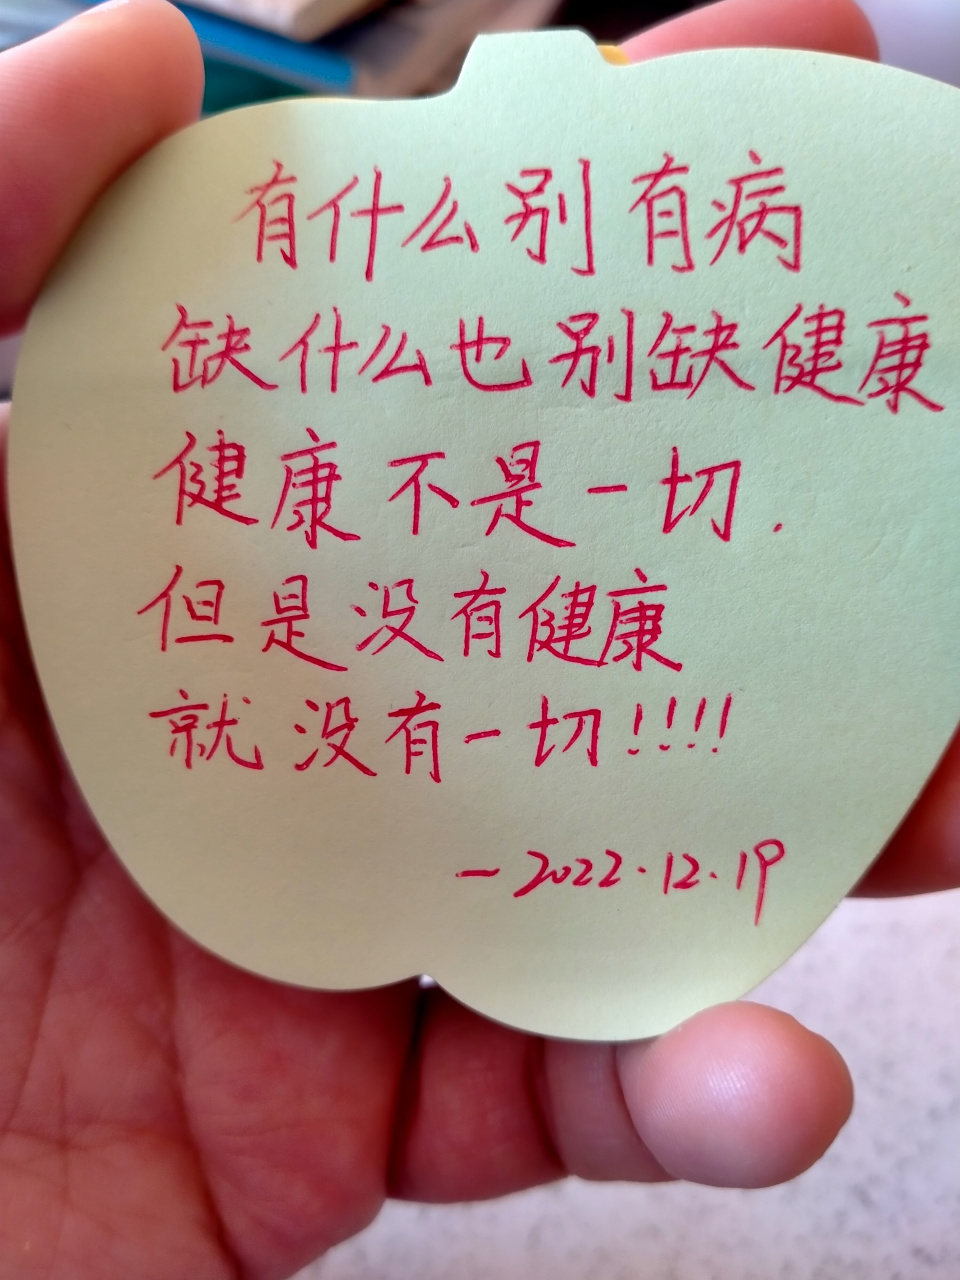 有什么别有病
缺什么也别缺健康
健康不是一切.
但是没有健康
就没有一切!!!!
—2022.12.19